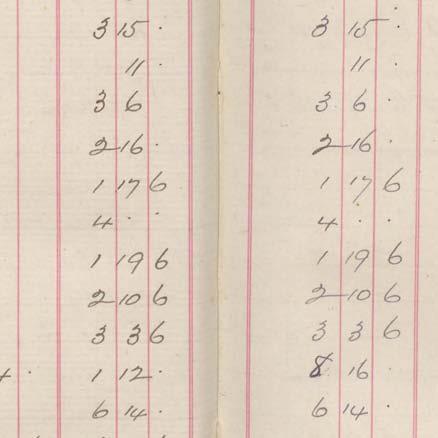 3 15 · 3 15 ·
11 · 11 ·
3 6 3 6 ·
2 16 · 2 16 ·
1 17 6 1 17 6
4 · · 4 · ·
1 19 6 1 19 6
2 10 6 2 10 6
3 3 6 3 3 6
· 1 12 · 8 16 ·
6 14 · 6 14 ·